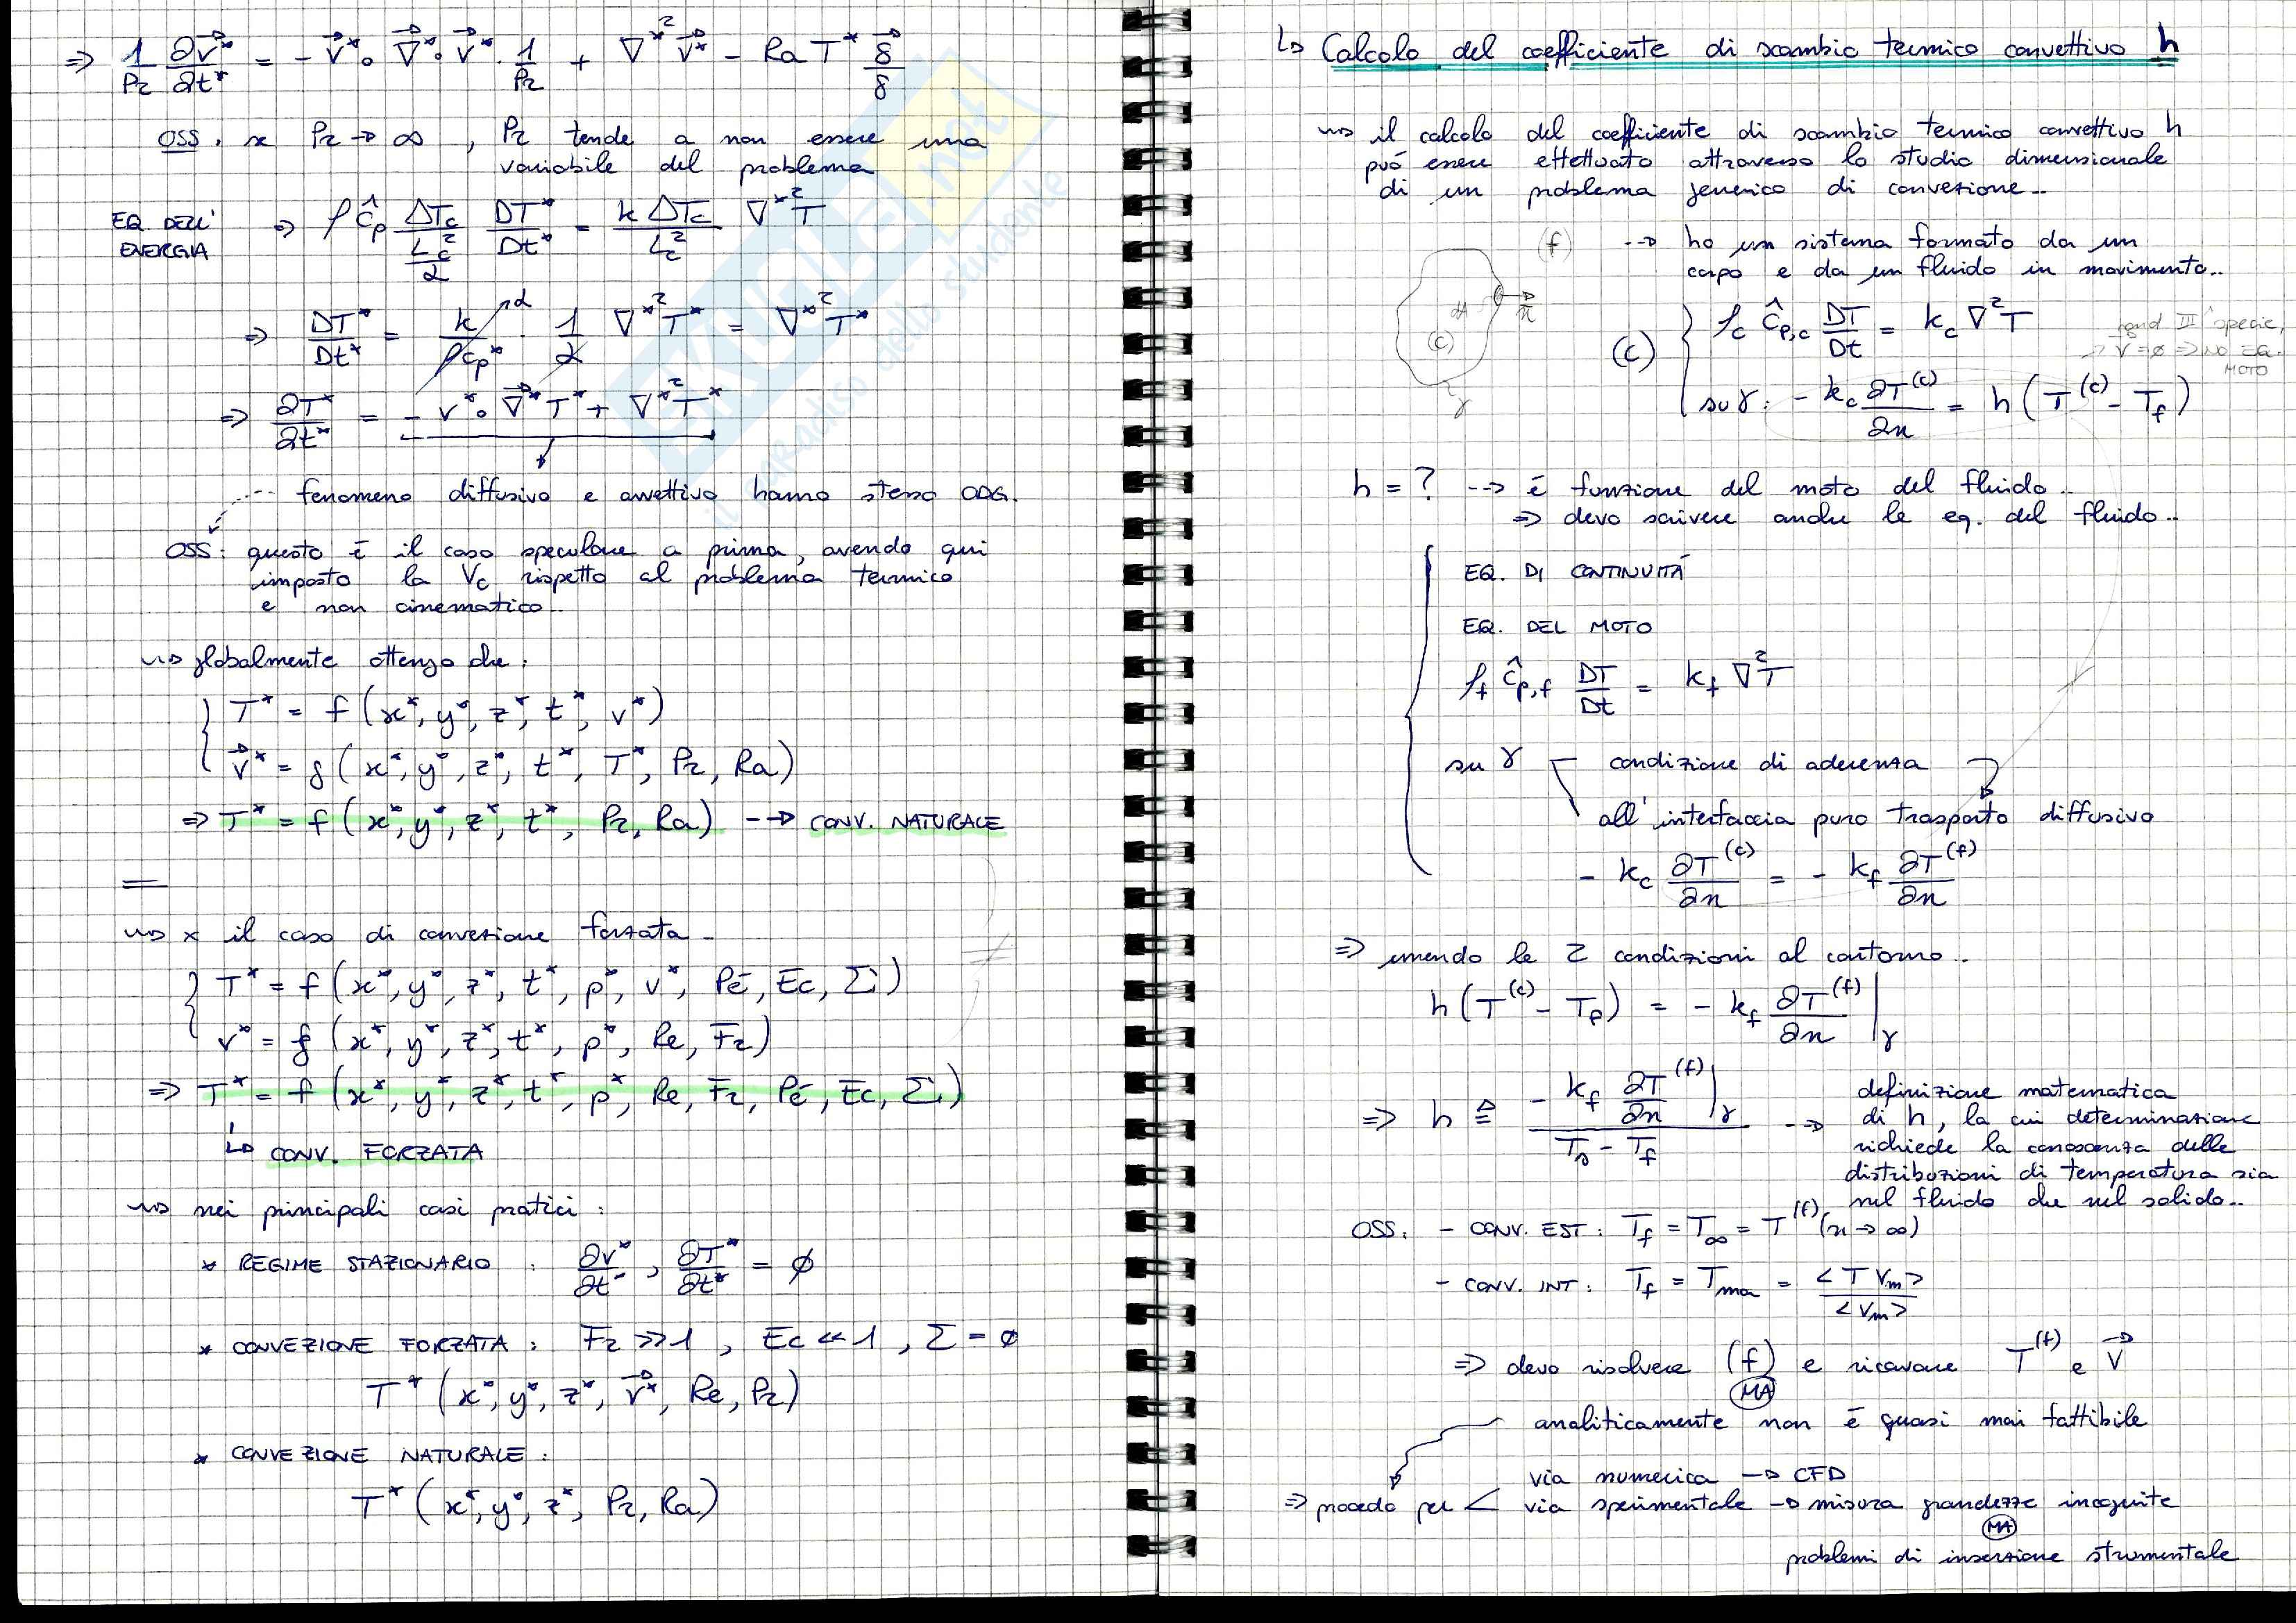 ⇒ 1/Pr ∂v⃗*/∂t* = - v⃗* ∘ ∇⃗* ∘ v⃗* · 1/Pr + ∇*² v⃗* - Ra T* g⃗/g
OSS. x Pr → ∞ , Pr tende a non essere una
variabile del problema
EQ. DELL'
ENERGIA
⇒ ρ ĉp ΔTc/(Lc²/α) DT*/Dt* = k ΔTc/Lc² ∇*²T
⇒ DT*/Dt* = k/ρcp* · 1/α ∇*²T* = ∇*²T*
α
⇒ ∂T*/∂t* = - v* ∘ ∇⃗*T* + ∇*²T*
fenomeno diffusivo e avvettivo hanno stesso ODG.
OSS: questo è il caso speculare a prima, avendo qui
imposto la Vc rispetto al problema termico
e non cinematico..
globalmente ottengo che:
T* = f (x*, y*, z*, t*, v*)
v⃗* = g (x*, y*, z*, t*, T*, Pr, Ra)
⇒ T* = f (x*, y*, z*, t*, Pr, Ra) --→ CONV. NATURALE
x il caso di convezione forzata..
T* = f (x*, y*, z*, t*, p*, v*, Pé, Ec, Σ)
v* = g (x*, y*, z*, t*, p*, Re, Fr)
⇒ T* = f (x*, y*, z*, t*, p*, Re, Fr, Pé, Ec, Σ)
↳ CONV. FORZATA
nei principali casi pratici:
* REGIME STAZIONARIO : ∂v*/∂t* , ∂T*/∂t* = ∅
* CONVEZIONE FORZATA : Fr >> 1 , Ec << 1 , Σ = ∅
T* (x*, y*, z*, v⃗*, Re, Pr)
* CONVEZIONE NATURALE :
T* (x*, y*, z*, Pr, Ra)
SKUOLA.net
il paradiso dello studente
↳ Calcolo del coefficiente di scambio termico convettivo h
il calcolo del coefficiente di scambio termico convettivo h
può essere effettuato attraverso lo studio dimensionale
di un problema generico di convezione..
(f) --→ ho un sistema formato da un
corpo e da un fluido in movimento..
dA n⃗
(c)
γ
(c) ρc ĉp,c DT/Dt = kc ∇²T
cond III specie,
→ v=∅ ⇒ NO EQ.
MOTO
su γ : - kc ∂T(c)/∂n = h (T(c) - Tf)
h = ? --→ è funzione del moto del fluido..
⇒ devo scrivere anche le eq. del fluido..
EQ. DI CONTINUITÀ
EQ. DEL MOTO
ρf ĉp,f DT/Dt = kf ∇²T
su γ condizione di aderenza
all'interfaccia puro trasporto diffusivo
- kc ∂T(c)/∂n = - kf ∂T(f)/∂n
⇒ unendo le 2 condizioni al contorno..
h (T(c) - Tf) = - kf ∂T(f)/∂n |γ
⇒ h ≜ - kf ∂T(f)/∂n |γ / (Ts - Tf) --→ definizione matematica
di h, la cui determinazione
richiede la conoscenza delle
distribuzioni di temperatura sia
nel fluido che nel solido..
OSS: - CONV. EST : Tf = T∞ = T(f) (n → ∞)
- CONV. INT : Tf = Tma = <T Vm>/<Vm>
⇒ devo risolvere (f) e ricavare T(f) e v⃗
MA
analiticamente non è quasi mai fattibile
via numerica → CFD
⇒ procedo per < via sperimentale → misura grandezze incognite
MA
problemi di inserzione strumentale